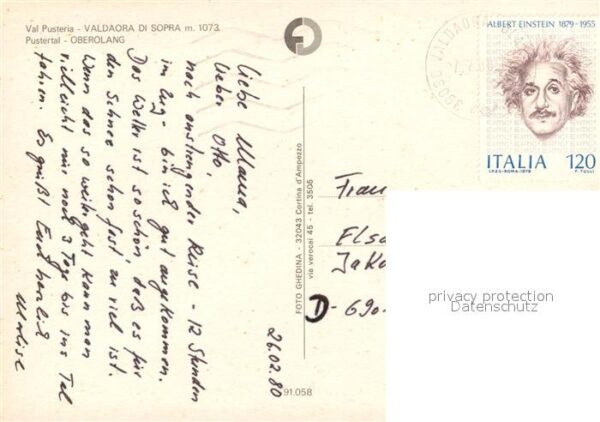 Val Pusteria - VALDAORA DI SOPRA m. 1073
Pustertal - OBEROLANG
Liebe Mama,
lieber Otto,
nach anstrengender Reise - 12 Stunden
im Zug - bin ich gut angekommen.
Das Wetter ist so schön, daß es für
den Schnee schon fast zu viel ist.
Wenn das so weitergeht kann man
vielleicht nur noch 3 Tage bis ins Tal
fahren. Es grüßt Euch herzlich
26.02.80
91.058
FOTO GHEDINA - 32043 Cortina d'Ampezzo
via verocai 45 - tel. 3505
ALBERT EINSTEIN 1879-1955
ITALIA 120
I.P.Z.S.-ROMA-1979 F. TULLI
39030 VALDAORA
Frau
Elsa
Jako
D-690
privacy protection
Datenschutz